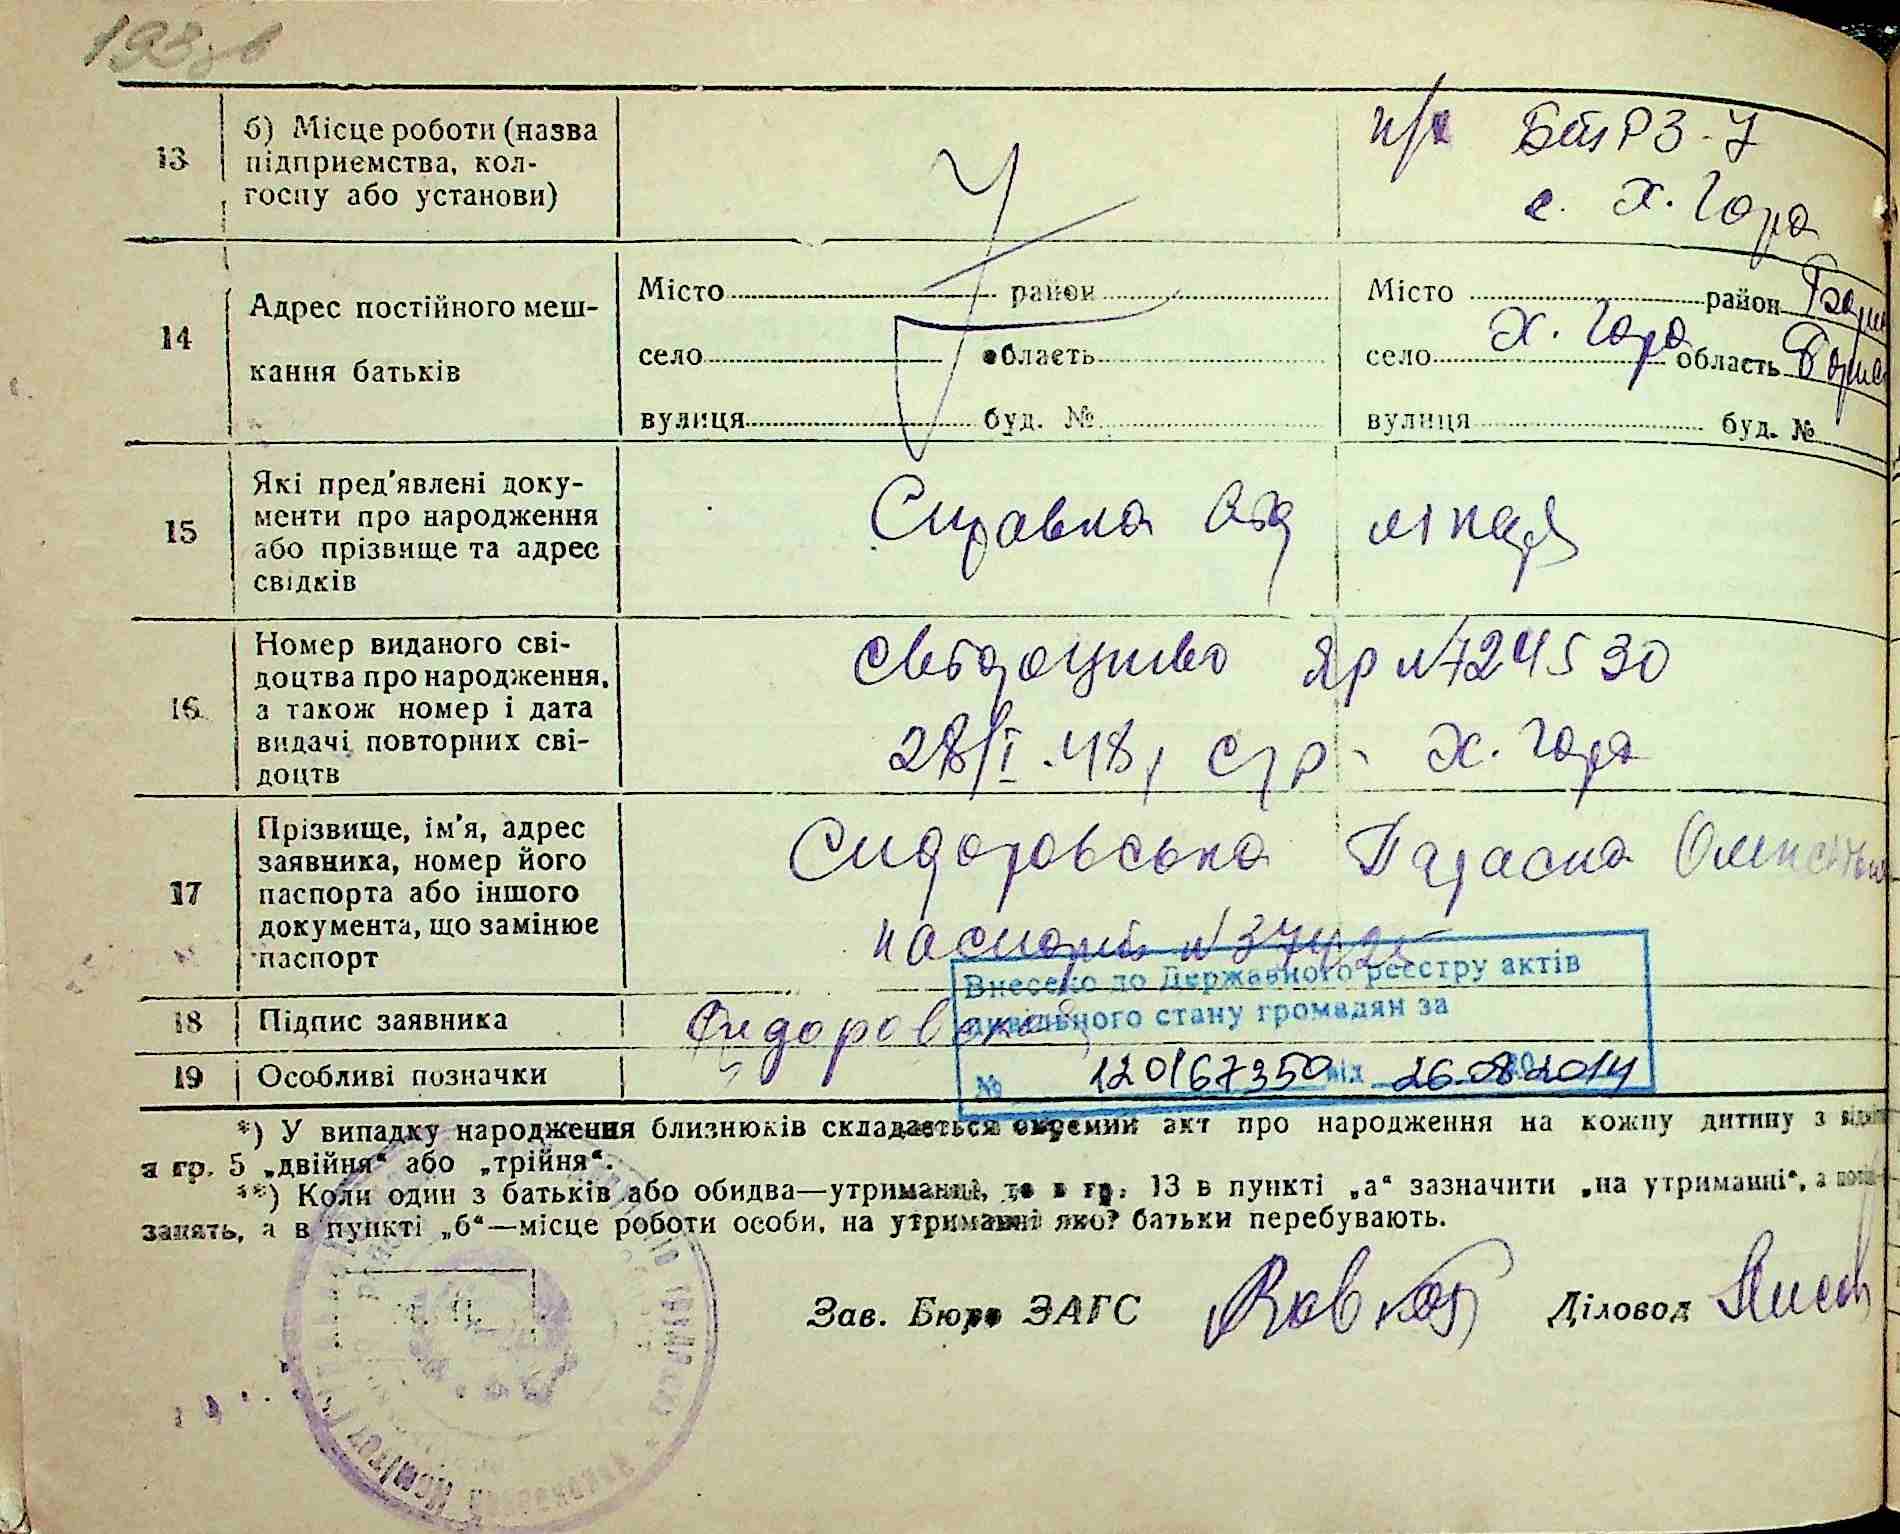 193 зв
13
б) Місце роботи (назва
підприємства, кол-
госпу або установи)
п/я БТРЗ-7
с. Х. Гора
14
Адрес постійного меш-
кання батьків
Місто район
село область
вулиця буд. №
Місто район
село Х. Гора область
вулиця буд. №
15
Які пред'явлені доку-
менти про народження
або прізвище та адрес
свідків
Справка від лікаря
16
Номер виданого сві-
доцтва про народження,
а також номер і дата
видачі повторних сві-
доцтв
Свідоцтво ЯР №724530
28/I.48р С/Р - Х. Гора
17
Прізвище, ім'я, адрес
заявника, номер його
паспорта або іншого
документа, що замінює
паспорт
Сидоровська Параска
паспорт №
Внесено до Державного реєстру актів
цивільного стану громадян за
№ 120167350 від 26.08.2014
18
Підпис заявника
Сидоровская
19
Особливі позначки
*) У випадку народження близнюків складається окремий акт про народження на кожну дитину з
в гр. 5 „двійня“ або „трійня“.
**) Коли один з батьків або обидва—утриманці, то в гр. 13 в пункті „а“ зазначити „на утриманні“, а
занять, а в пункті „б“—місце роботи особи, на утриманні якої батьки перебувають.
М. П.
Зав. Бюро ЗАГС
Діловод